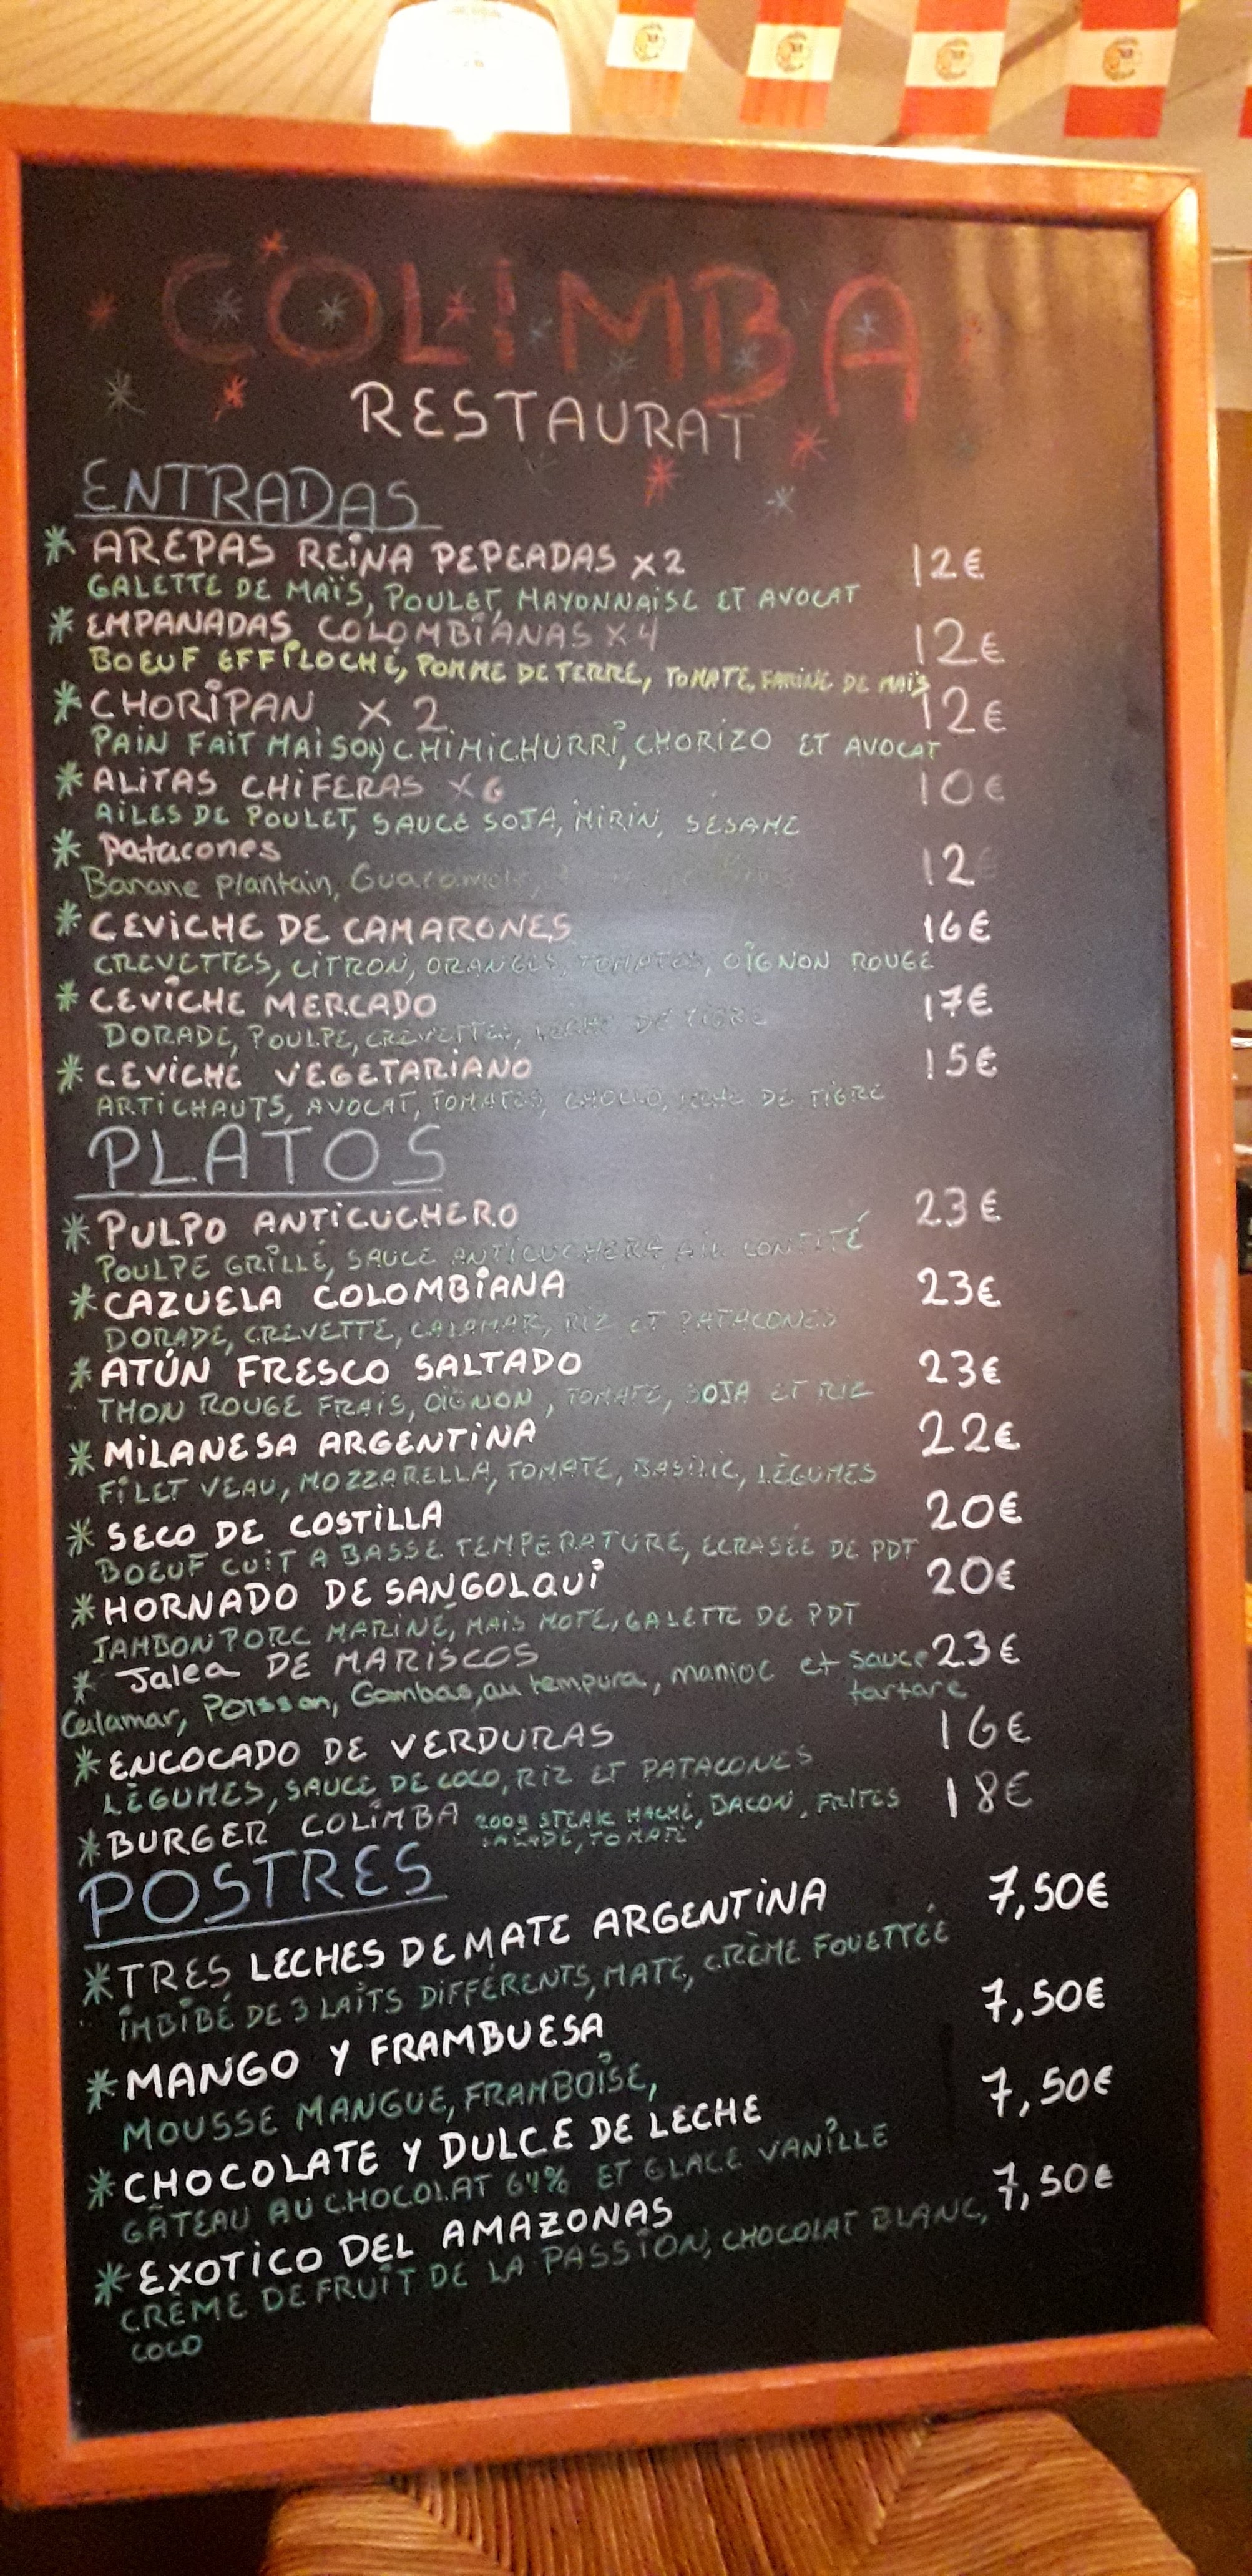 COLIMBA
RESTAURAT
ENTRADAS
* AREPAS REINA PEPEADAS x2 12€
GALETTE DE MAÏS, POULET, MAYONNAISE ET AVOCAT
* EMPANADAS COLOMBIANAS X4 12€
BOEUF EFFILOCHÉ, POMME DE TERRE, TOMATE, FARINE DE MAÏS
* CHORIPAN X 2 12€
PAIN FAIT MAISON, CHIMICHURRI, CHORIZO ET AVOCAT
* ALITAS CHIFERAS X6 10€
AILES DE POULET, SAUCE SOJA, MIRIN, SÉSAME
* Patacones 12€
Banane plantain, Guacamole,
* CEVICHE DE CAMARONES 16€
CREVETTES, CITRON, ORANGES, TOMATES, OIGNON ROUGE
* CEVICHE MERCADO 17€
DORADE, POULPE, CREVETTES, LECHE DE TIGRE
* CEVICHE VEGETARIANO 15€
ARTICHAUTS, AVOCAT, TOMATES, CHOCLO, LECHE DE TIGRE
PLATOS
* PULPO ANTICUCHERO 23€
POULPE GRILLÉ, SAUCE ANTICUCHERA, AIL CONFITÉ
* CAZUELA COLOMBIANA 23€
DORADE, CREVETTE, CALAMAR, RIZ ET PATACONES
* ATÚN FRESCO SALTADO 23€
THON ROUGE FRAIS, OIGNON, TOMATE, SOJA ET RIZ
* MILANESA ARGENTINA 22€
FILET VEAU, MOZZARELLA, TOMATE, BASILIC, LÉGUMES
* SECO DE COSTILLA 20€
BOEUF CUIT A BASSE TEMPERATURE, ECRASÉE DE PDT
* HORNADO DE SANGOLQUI 20€
JAMBON PORC MARINÉ, MAÏS MOTE, GALETTE DE PDT
* Jalea DE MARISCOS 23€
Calamar, Poisson, Gambas, au tempura, manioc et sauce
tartare
* ENCOCADO DE VERDURAS 16€
LÉGUMES, SAUCE DE COCO, RIZ ET PATACONES
* BURGER COLIMBA 200g STEAK HACHÉ, BACON, FRITES 18€
SALADE, TOMATE
POSTRES
* TRES LECHES DE MATE ARGENTINA 7,50€
IMBIBÉ DE 3 LAITS DIFFÉRENTS, MATE, CRÈME FOUETTÉE
* MANGO Y FRAMBUESA 7,50€
MOUSSE MANGUE, FRAMBOISE,
* CHOCOLATE Y DULCE DE LECHE 7,50€
GÂTEAU AU CHOCOLAT 64% ET GLACE VANILLE
* EXOTICO DEL AMAZONAS 7,50€
CRÈME DE FRUIT DE LA PASSION, CHOCOLAT BLANC,
COCO